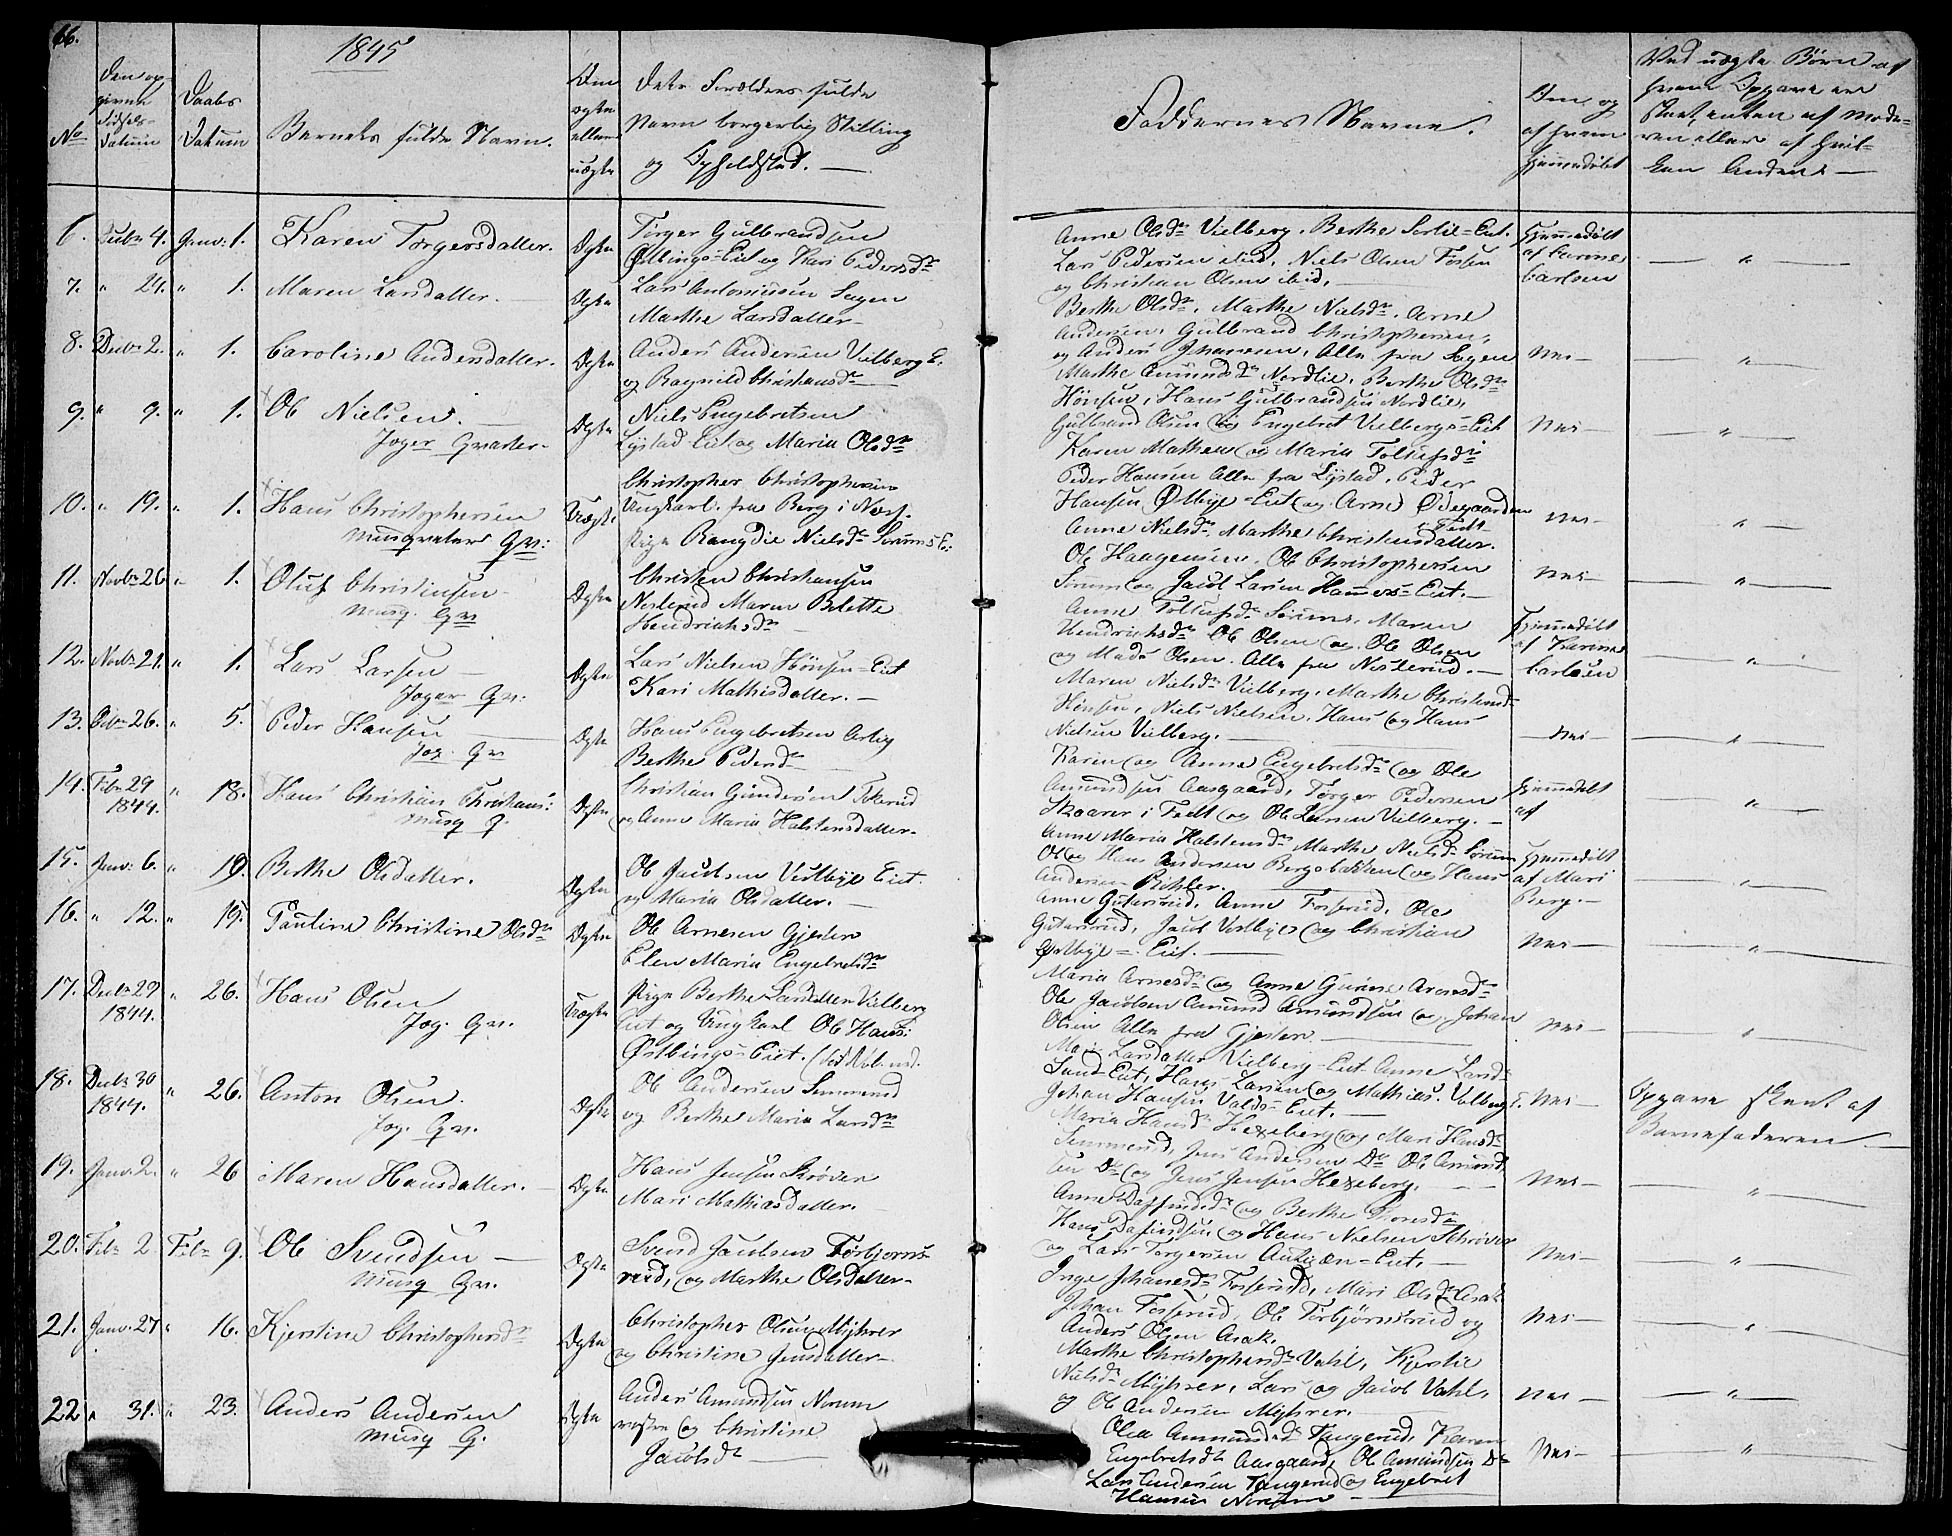 66.
1845
No
Den op-
givne
Fødsels-
Datum
Daabs
Datum
Barnets fulde Navn.
Om
ægte
eller
uægte
Dets Forældres fulde
Navn borgerlig Stilling
og Opholdsted. —
Faddernes Navne.
Om, og
af hvem
hjemmedøbt
Ved uægte Børn af
hvem Opgave er
skeet, enten af Mode-
ren eller af hvil-
ken Anden. —
6. Decbr 4. Janv: 1. Karen Torgersdatter. Ægte
Torger Gulbrandsen
Østbings-Eiet og Kari Pedersdr
Anne Olsdr Vielberg, Berthe Eiet.
Lars Pedersen ibid, Niels Olsen Fossen
og Christian Olsen ibid.
Hjemmedøbt
af Karine
Carlsen
7. " 21. " 1. Maren Larsdatter. Ægte
Lars Antonisen Sagen
Marthe Larsdatter.
Berthe Olsdr, Marthe Nielsdr, Arne
Andersen, Gulbrand Christophersen,
og Anders Johannesen, Alle fra Sagen
Nei —
8. Decbr 2. " 1. Caroline Andersdatter. Ægte
Anders Andersen Vielberg E.
og Ragnild Christiansdr
Marthe Amundsdr Nordlie, Berthe Olsdr
Hønsen, Hans Gulbrandsen Nordlie,
Gulbrand Olsen og Engebret Vielbergs-Eiet
Nei —
9. " 9. " 1. Ole Nielsen. —
Jæger Qvarter. Ægte
Niels Engebretsen
Lystad Eiet og Maria Olsdr
Karen Mathea og Maria Tollefsdr
Peder Hansen Alle fra Lystad, Peder
10. " 19. " 1. Hans Christophersen
Musqveteer Qv: Uægte
Christopher Christophersen
Ungkarl fra Berg i Næs.
Pige Rangdie Nielsdr Sørums E.
Hansen Østbye-Eiet og Arne Ødegaarden
Anne Nielsdr, Marthe Christensdatter.
Nei —
11. Novbr 26 " 1. Oluf Christensen
Musq. Qv Ægte
Christen Christiansen
Nesterud Maren Belette
Hendrichsdr
Ole Haagensen, Ole Christophersen
Sørum og Jacob Larsen Hammers-Eiet. —
Nei —
12. Novbr 21. " 1. Lars Larsen —
Jæger Qv: Ægte
Lars Nielsen Hønsen-Eiet
Kari Mathisdatter. —
Anne Tollefsdr Sørum, Maren
Hendrichsdr Ole Olsen og Ole Olsen
og Mads Olsen. Alle fra Nesterud. —
Hjemmedøbt
af Karine
Carlsen
13. 26. " 5. Peder Hansen
Jæg. Qv Ægte
Hans Engebretsen
Berthe Pedersdr
Maren Nielsdr Vielberg, Marthe Christensdr
Hønsen, Niels Nielsen, Hans og Hans
Nielsen Vielberg.
Nei —
14. Febr 29
1844. " 18. Hans Christian Christians:
Musq Q. Ægte
Christian Gundersen
og Anne Maria Halstensdatter.
Karen og Anne Engebretsdr og Ole
Amundsen Aasgaard, Torger Pedersen
Skoarer i Fedt og Ole Larsen Vielberg. —
Hjemmedøbt
af
15. Janv: 6. " 19. Berthe Olsdatter. Ægte
Ole Jacobsen Vestbye Eiet.
og Maria Olsdatter. —
Anne Maria Halstensdr Marthe Nielsdr Sørum
Ole og Hans Andersen Bergsbakken og Hans
Andersen
Hjemmedøbt
af Mari
Berg. —
16. " 12. " 19. Pauline Christine Olsdr Ægte
Ole Arnesen Gjesten
Elen Maria Engebretsdr
Anne Gutersrud, Anne Fosserud, Ole
Gutersrud, Jacob Vestbye og Christian
Østbye-Eiet. —
Nei —
17. Decbr 29
1844. " 26. Hans Olsen
Jæg. Qv. Uægte
Pige Berthe Larsdatter Vielberg
Eiet og Ungkarl Ole Hans:
Østbings-Eiet.
Maria Arnesdr og Anne Gurine Arnesdr
Ole Jacobsen Amund Amundsen og Johan
Olsen Alle fra Gjesten.
Nei —
18. Decbr 30
1844. " 26. Anton Olsen.
Jæg. Qv. Ægte
Ole Andersen Simmerud
og Berthe Maria Larsdr
Mari Larsdatter Vielberg-Eiet Anne Larsdr
Sund-Eiet, Hans Larsen og Mathias Vielberg E.
Johan Hansen Valds-Eiet.
Nei —
Opgave skeet af
Barnefaderen
19. Janv: 2. " 26 Maren Hansdatter. — Ægte
Hans Jensen Skrøver
Mari Mathiasdatter.
Maria Hansdr Hexeberg og Mari Hansdr
Simmerud, Jens Andersen Do Ole Amund-
sen Do og Jens Jensen Hexeberg.
Nei —
20. Febr 2. Febr 9. Ole Svendsen —
Musq Qv. Ægte
Svend Jacobsen Torbjørns-
rud, og Marthe Olsdatter.
Anne Daffinsdr og Berthe Thoresdr
Hans Dafindsen og Hans Nielsen Schrøver
og Lars Torgersen Eiet. —
Nei —
21. Janv: 27 " 16. Kjerstine Christophersdr Ægte
Christopher Olsen Myhrer
og Christine Jensdatter.
Inge Johannesdr Fosserud, Mari Olsdr Asak
Johan Fosserud, Ole Torbjørnsrud og
Anders Olsen Asak.
Nei —
22 " 31. " 23. Anders Andersen
Musq Q. Ægte
Anders Amundsen Norum
vestre og Christine
Jacobsdr
Marthe Christophersdr Vahl, Kjerstie
Nielsdr Myhrer, Lars og Jacob Vahl,
og Ole Andersen Myhrer.
Nei —
Olea Amundsdr Tangerud, Karen
Engebretsdr Aasgaard, Ole Amundsen Do
Lars Andersen Tangerud og Engebret
Hansen Norum
Nei —